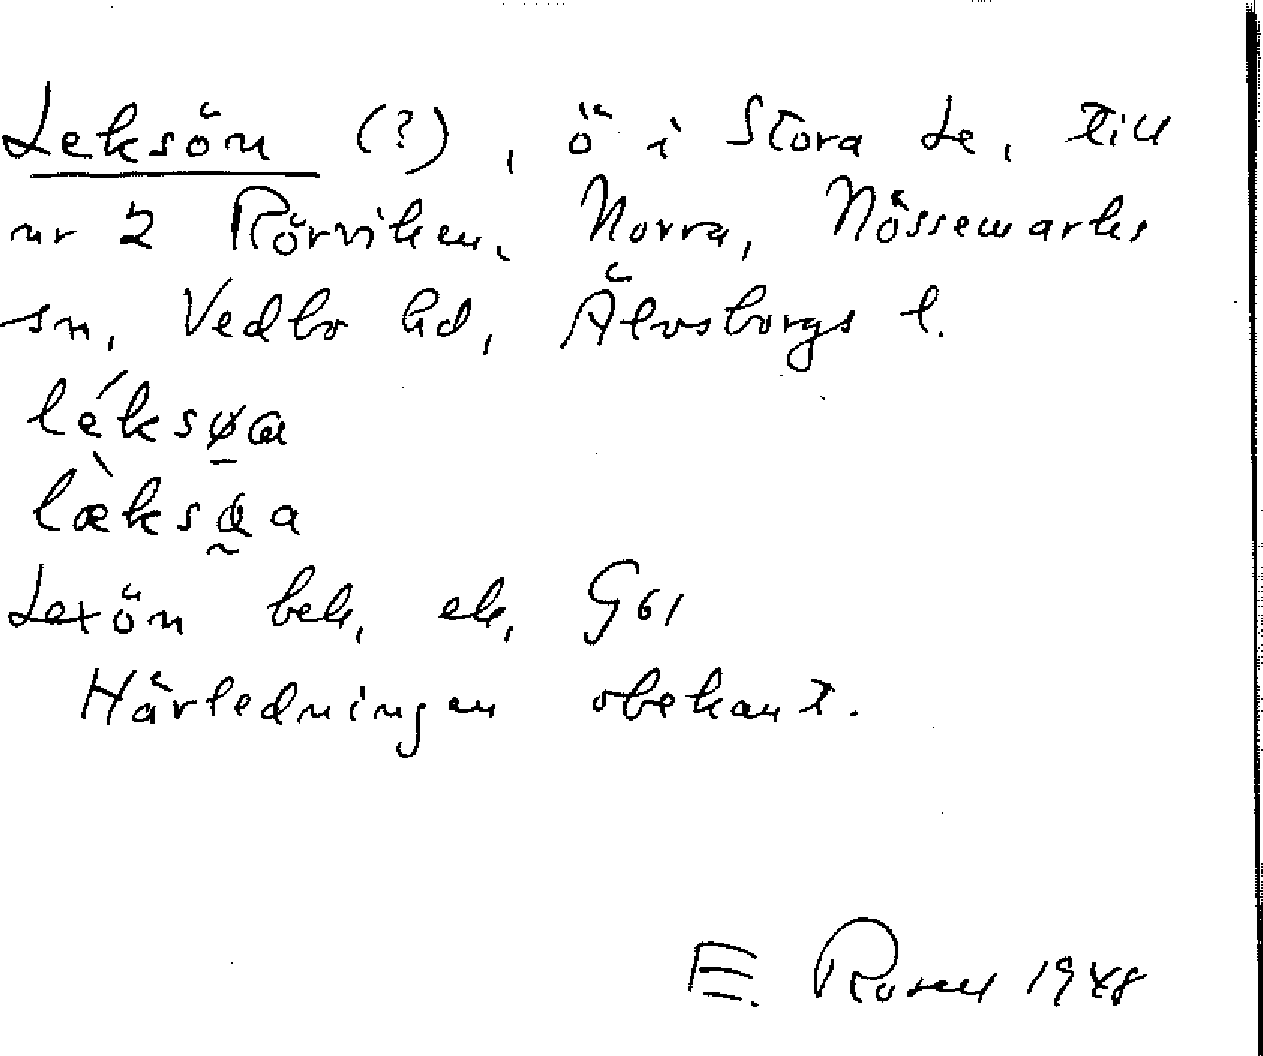 Leksön (?), ö i Stora Le, till
nr 2 Rörviken, Norra, Nössemarks
sn, Vedbo hd, Älvsborgs l.
léksøa
læ̀ksøa
Lexön bek. ek. G61
Härledningen obekant.
E. Rosell 1948